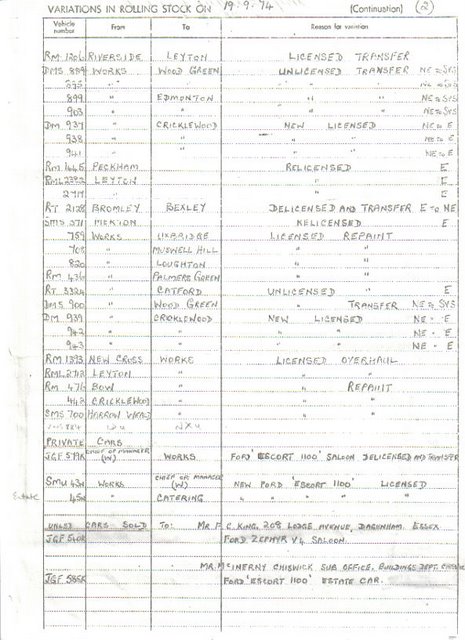 VARIATIONS IN ROLLING STOCK ON 19.9.74 (Continuation) (2)
Vehicle number From To Reason for variation
RM 1206 RIVERSIDE LEYTON LICENSED TRANSFER
DMS 889 WORKS WOOD GREEN UNLICENSED TRANSFER NE to SYS
895 " " " " NE to SYS
899 " EDMONTON " " NE to SYS
903 " " " " NE to SYS
DM 937 " CRICKLEWOOD NEW LICENSED NE to E
938 " " " " NE to E
941 " " " " NE to E
RM 1446 PECKHAM RELICENSED E
RML LEYTON " E
2717 " " E
RT 2128 BROMLEY BEXLEY DELICENSED AND TRANSFER E to NE
SMS 371 MERTON RELICENSED E
759 WORKS UXBRIDGE LICENSED REPAINT
768 " MUSWELL HILL " "
820 " LOUGHTON " "
RM 436 " PALMERS GREEN " "
RT 3324 " CATFORD UNLICENSED " E
DMS 900 " WOOD GREEN " TRANSFER NE to SYS
DM 939 " CRICKLEWOOD NEW LICENSED NE - E
942 " " " " NE - E
943 " " " " NE - E
RM 1393 NEW CROSS WORKS LICENSED OVERHAUL
RML LEYTON " " "
RM 476 BOW " " REPAINT
442 CRICKLEWOOD " " "
SMS 700 HARROW WEALD " " "
PRIVATE CARS
JGF 579K CHIEF OP MANAGER (W) WORKS FORD 'ESCORT 1100' SALOON DELICENSED AND TRANSFER
SMU 43N WORKS CHIEF OP MANAGER (W) NEW FORD 'ESCORT 1100' LICENSED
Estate 45N " CATERING " " " " "
CARS SOLD TO: MR F C. KING, 208 LODGE AVENUE, DAGENHAM. ESSEX
JGF 540K FORD ZEPHYR V4 SALOON.
MR. MCINERNY CHISWICK SUB OFFICE. BUILDINGS DEPT.
JGF 585K FORD 'ESCORT 1100' ESTATE CAR.